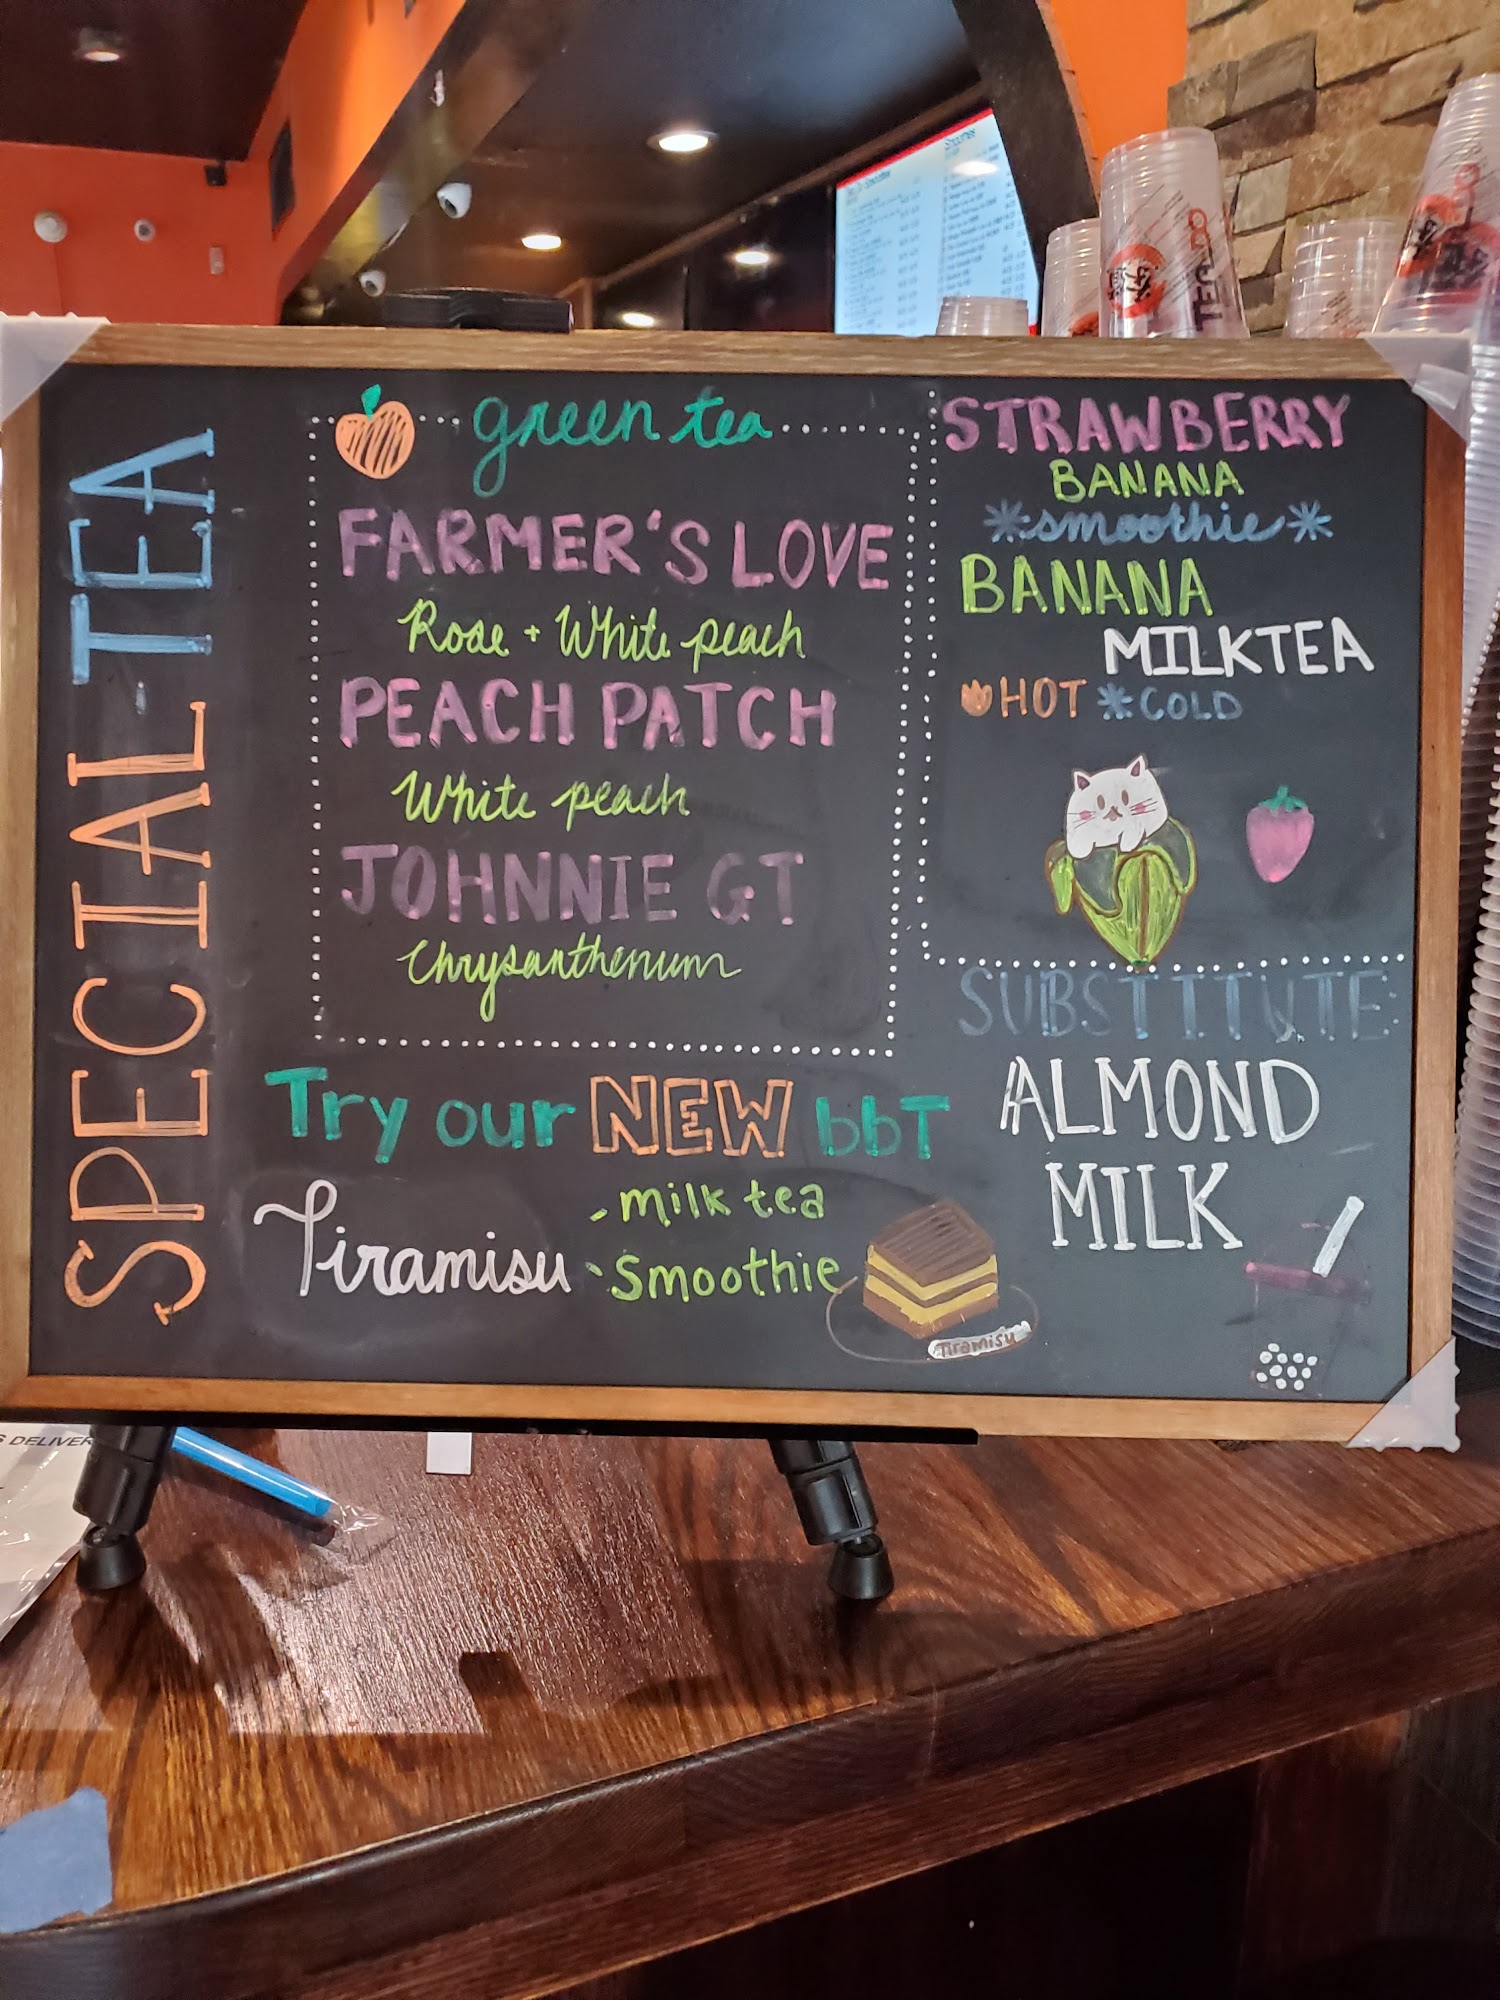 SPECIAL TEA
green tea
FARMER'S LOVE
Rose + White peach
PEACH PATCH
White peach
JOHNNIE GT
Chrysanthenum
STRAWBERRY
BANANA
*smoothie*
BANANA
MILKTEA
HOT *COLD
SUBSTITUTE:
ALMOND
MILK
Try our NEW bbT
Tiramisu
- milk tea
- Smoothie
Tiramisu
Smoothies
TEA-DO
S DELIVER